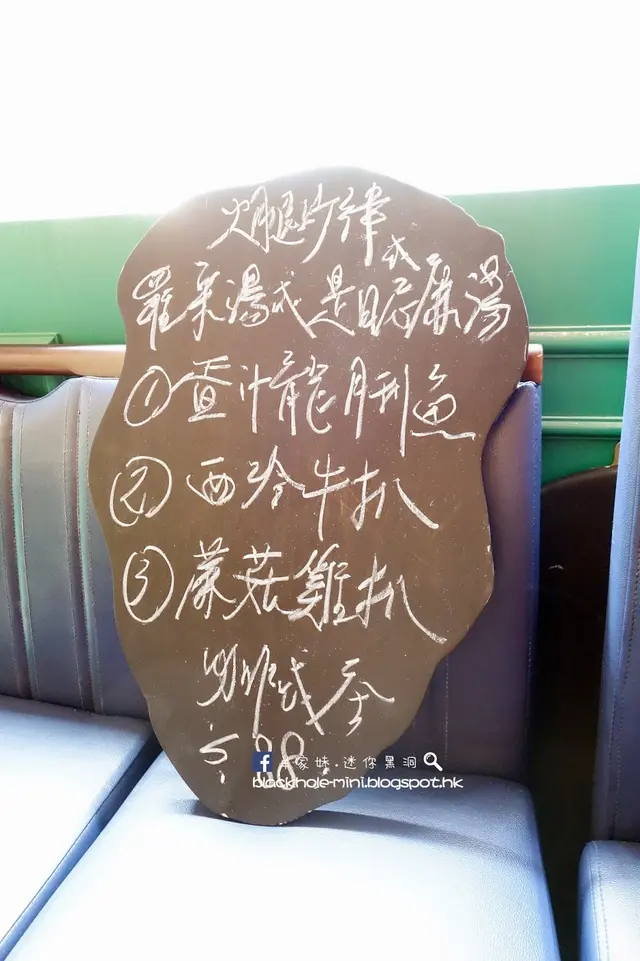 火腿沙律
或
羅宋湯或是日忌廉湯
① 汁龍脷魚
② 西冷牛扒
③ 蘑菇雞扒
咖啡或茶
$88.
家妹.迷你黑洞
blackhole-mini.blogspot.hk